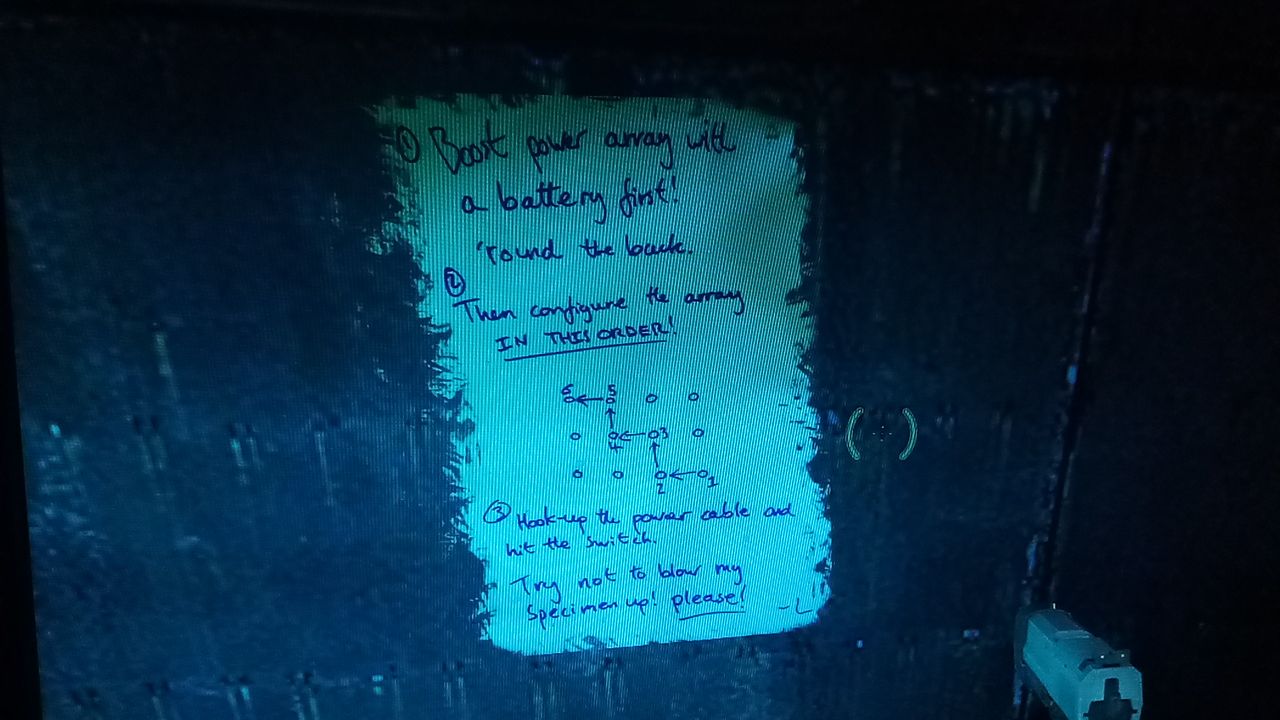 ① Boost power array with
a battery first!
'round the back.
②
Then configure the array
IN THIS ORDER!
6 5
3
4
2 1
③ Hook-up the power cable and
hit the switch.
Try not to blow my
specimen up! please!
- L